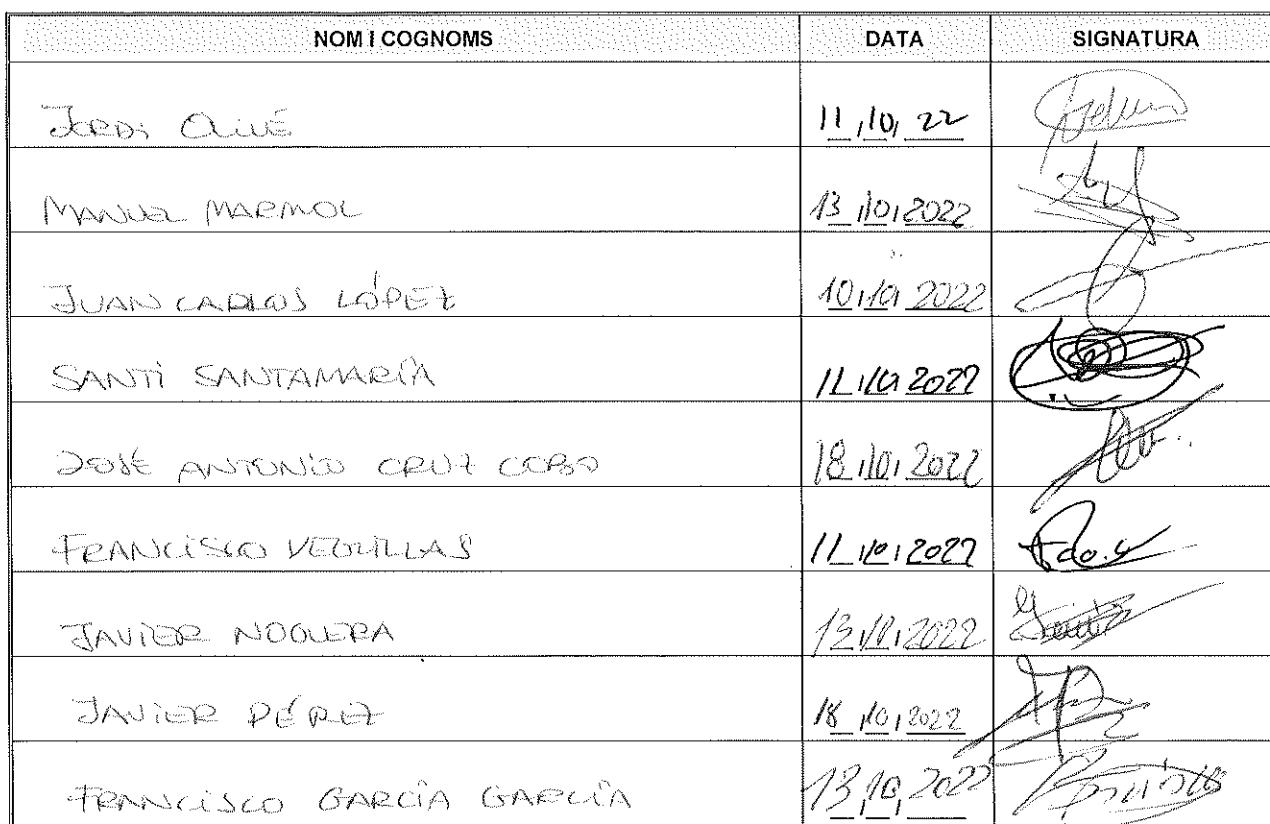 NOM I COGNOMS DATA SIGNATURA
JORDI OLIVÉ 11/10/22
MANUEL MARMOL 13/10/2022
JUAN CARLOS LÓPEZ 10/10/2022
SANTI SANTAMARÍA 11/10/2022
JOSÉ ANTONIO CRUZ COBO 18/10/2022
FRANCISCO VEGUILLAS 11/10/2022
JAVIER NOGUERA 13/10/2022
JAVIER PÉREZ 18/10/2022
FRANCISCO GARCÍA GARCÍA 13/10/2022